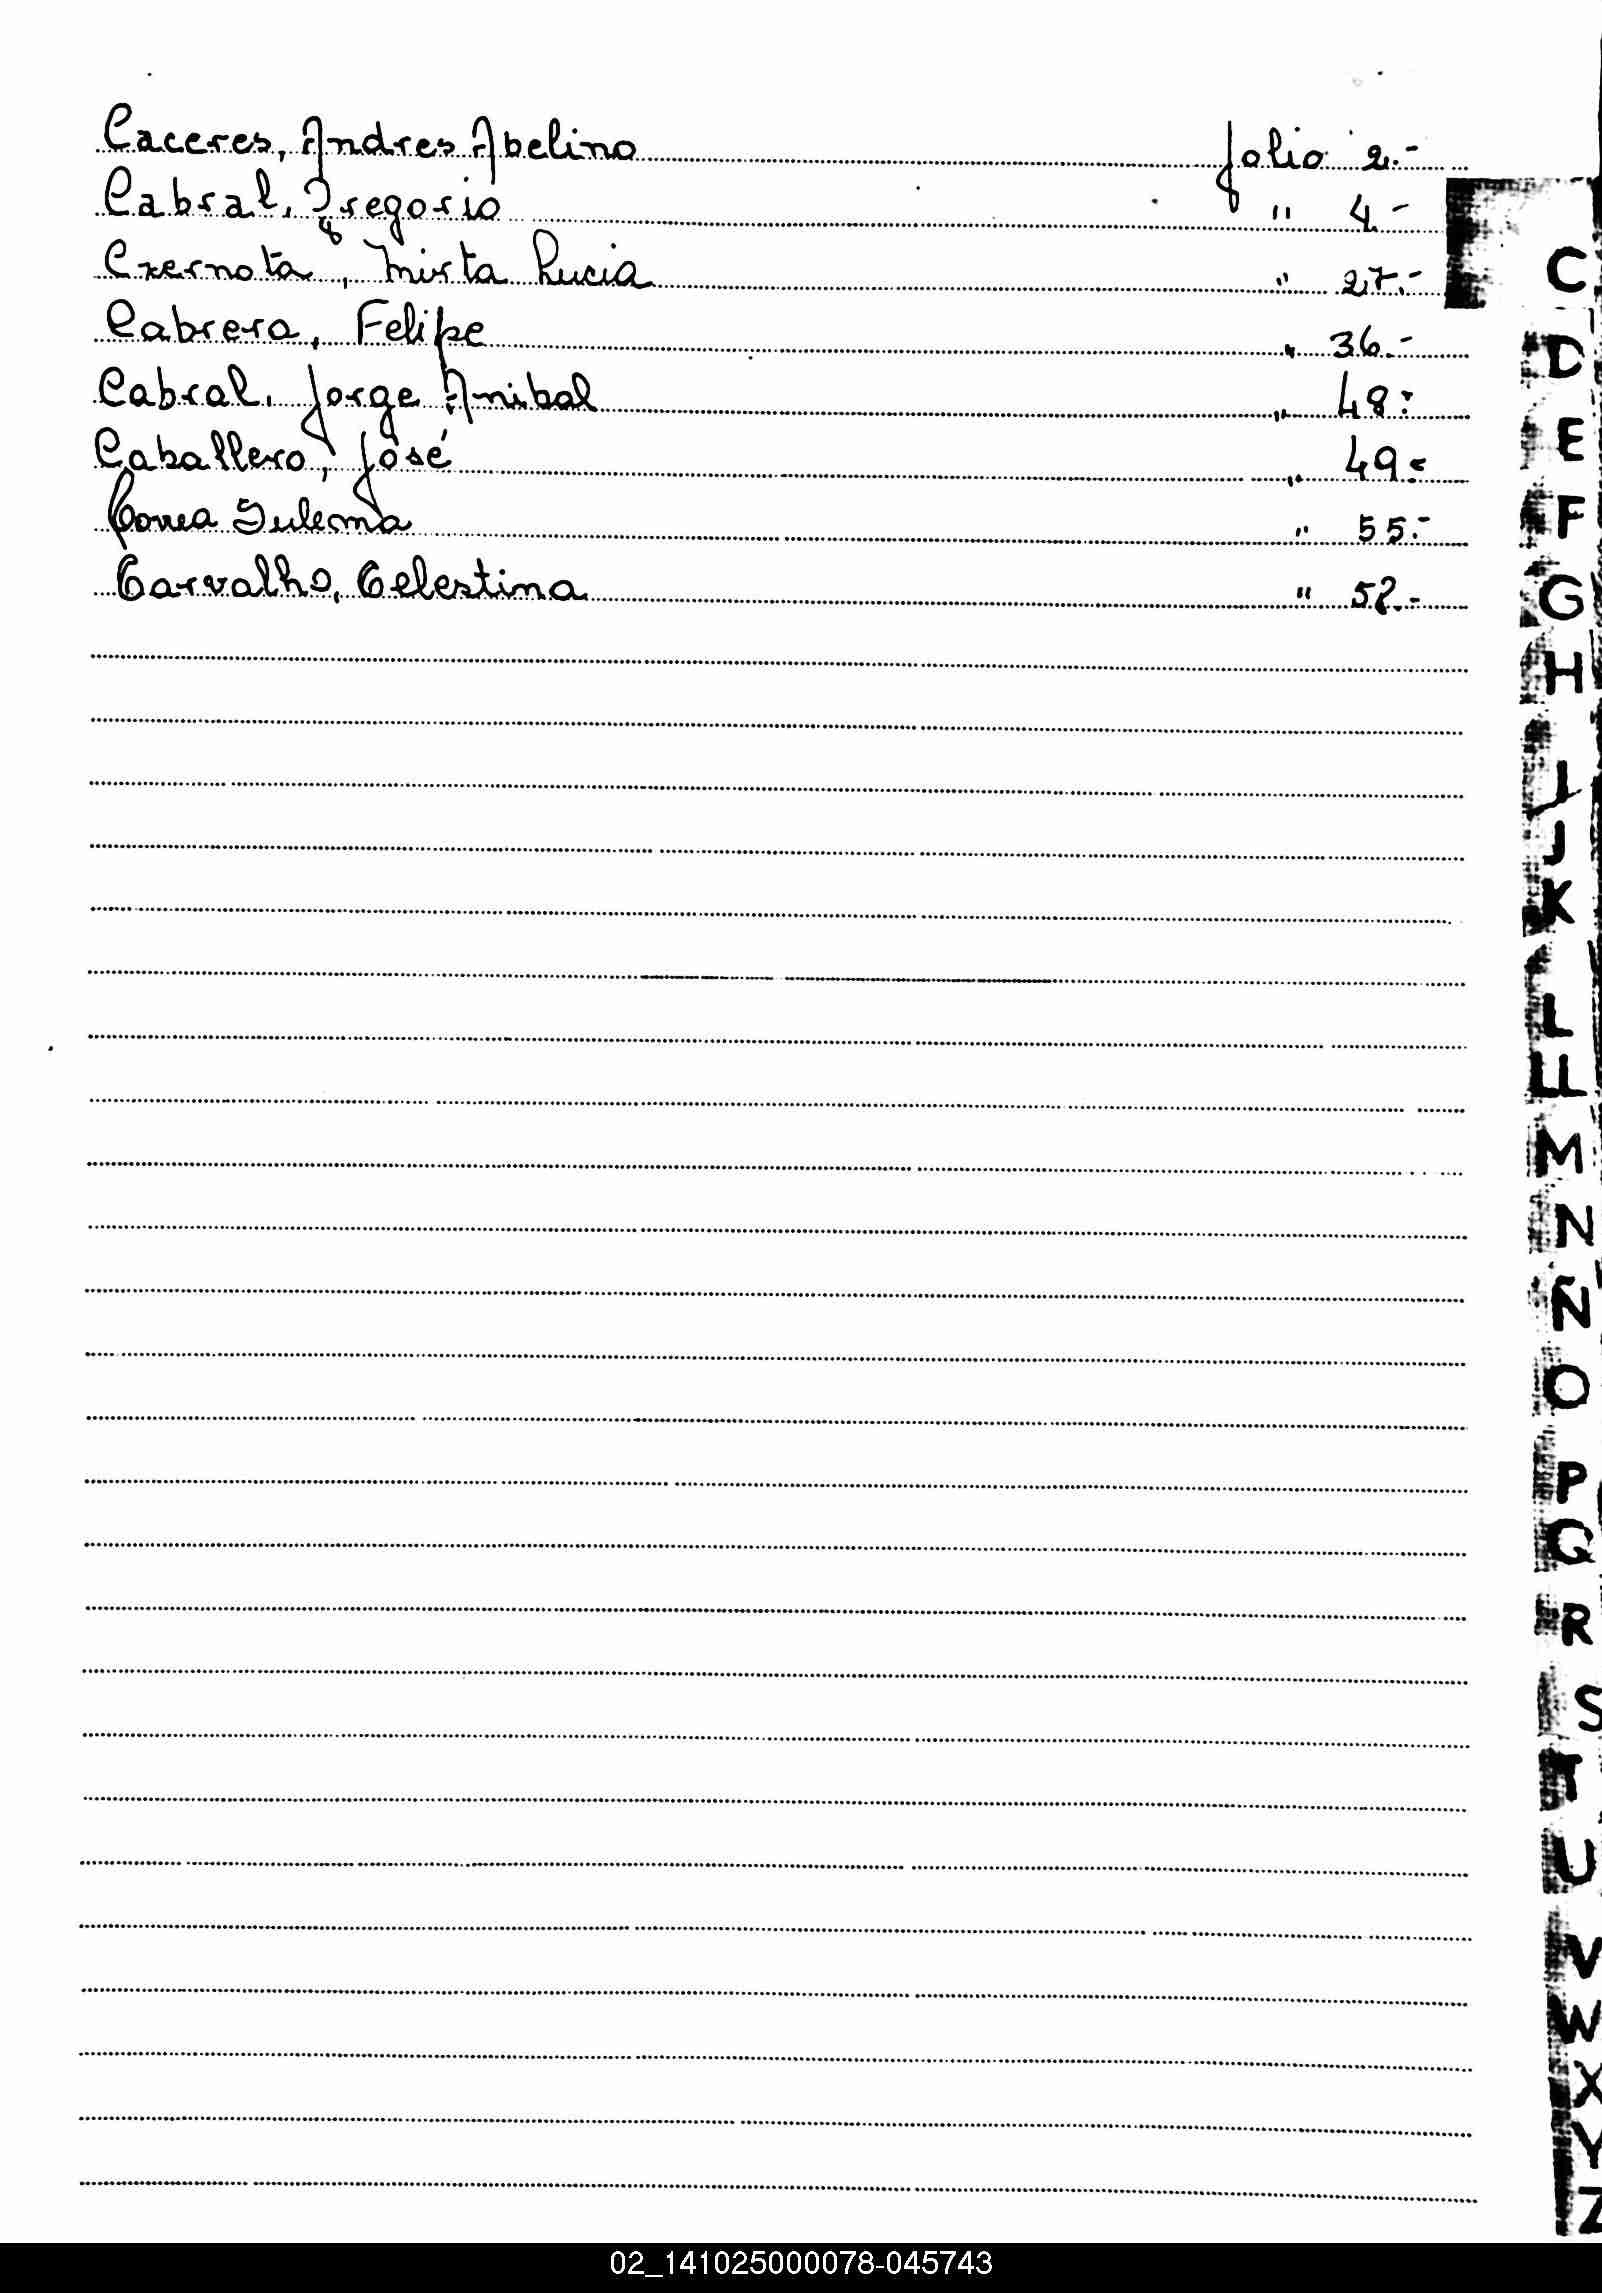 Caceres, Andres Abelino folio 2.-
Cabral, Gregorio " 4.-
Czernota, Mirta Lucia " 27.-
Cabrera, Felipe " 36.-
Cabral, Jorge Anibal " 48.-
Caballero, José " 49.-
Correa Sulema " 55.-
Carvalho, Celestina " 52.-
C
D
E
F
G
H
I
J
K
L
LL
M
N
Ñ
O
P
Q
R
S
T
U
V
W
X
Y
Z
02_141025000078-045743